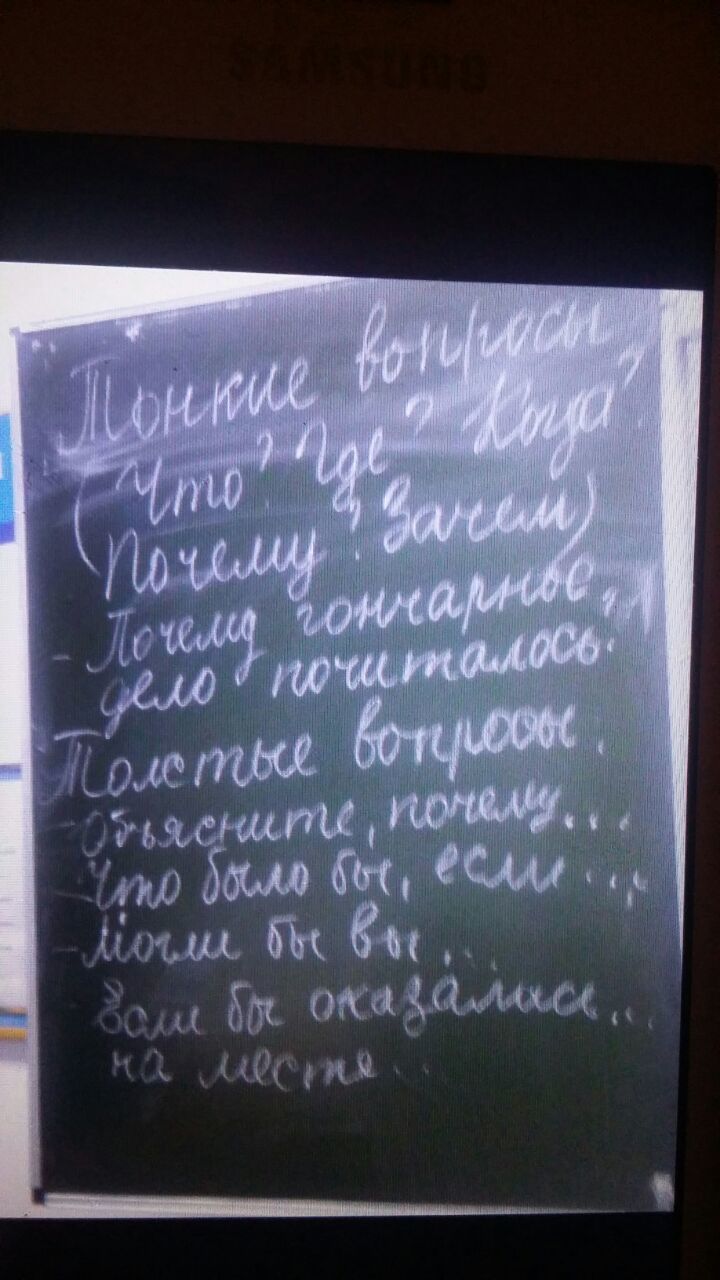 SAMSUNG
Тонкие вопросы
(Что? Где? Когда?
Почему? Зачем)
- Почему гончарное
дело почиталось?
Толстые вопросы.
- Объясните, почему...
- Что было бы, если ...
- Могли бы вы...
- Если бы оказались...
на месте...